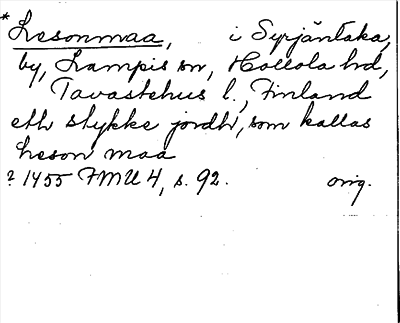 * Lesonmaa, i Syrjäntaka,
by, Lampis sn, Hollola hd,
Tavastehus l., Finland
eth stykke jordh, som kallas
Leson maa
? 1455 FMU 4, s. 92. orig.